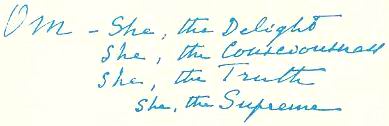 OM – She, the Delight
She, the Consciousness
She, the Truth
She, the Supreme